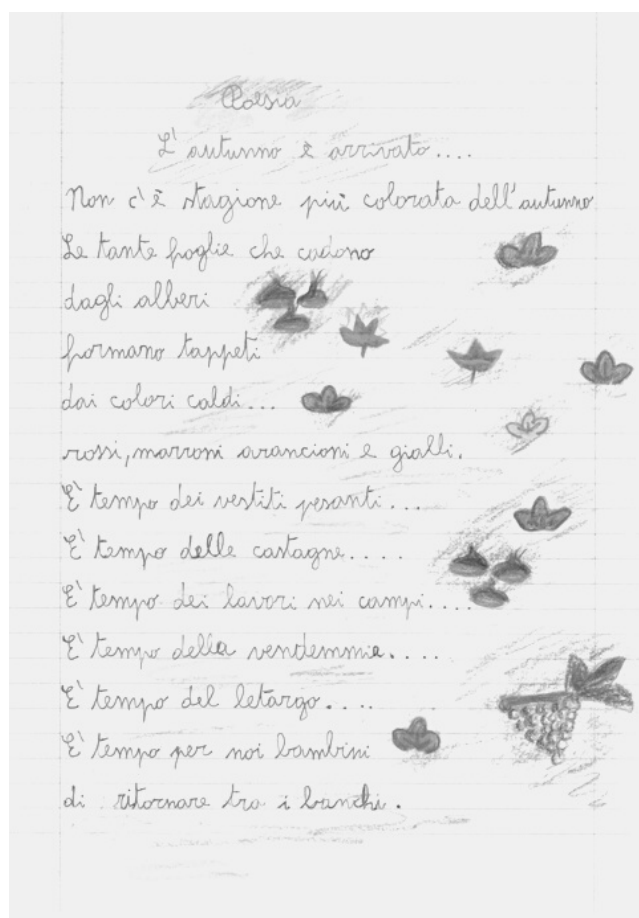 Poesia
L'autunno è arrivato....
Non c'è stagione più colorata dell'autunno
Le tante foglie che cadono
dagli alberi
formano tappeti
dai colori caldi...
rossi, marroni arancioni e gialli.
E' tempo dei vestiti pesanti...
E' tempo delle castagne....
E' tempo dei lavori nei campi....
E' tempo della vendemmia....
E' tempo del letargo....
E' tempo per noi bambini
di ritornare tra i banchi.